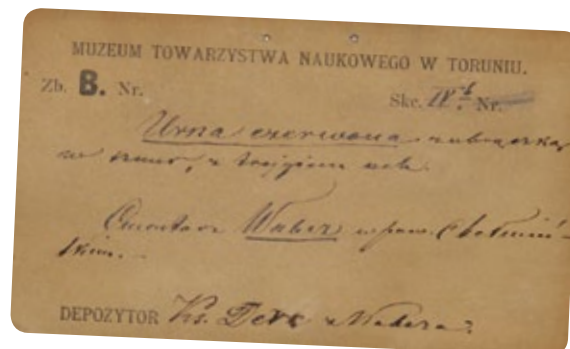 MUZEUM TOWARZYSTWA NAUKOWEGO W TORUNIU.
Zb. B. Nr. Skc. IV Nr.
Urna czerwona z obrączką
w , z trojgiem uch.
Cmentarz Waberz w pow. Chełmiń-
skim.
DEPOZYTOR Ks. z